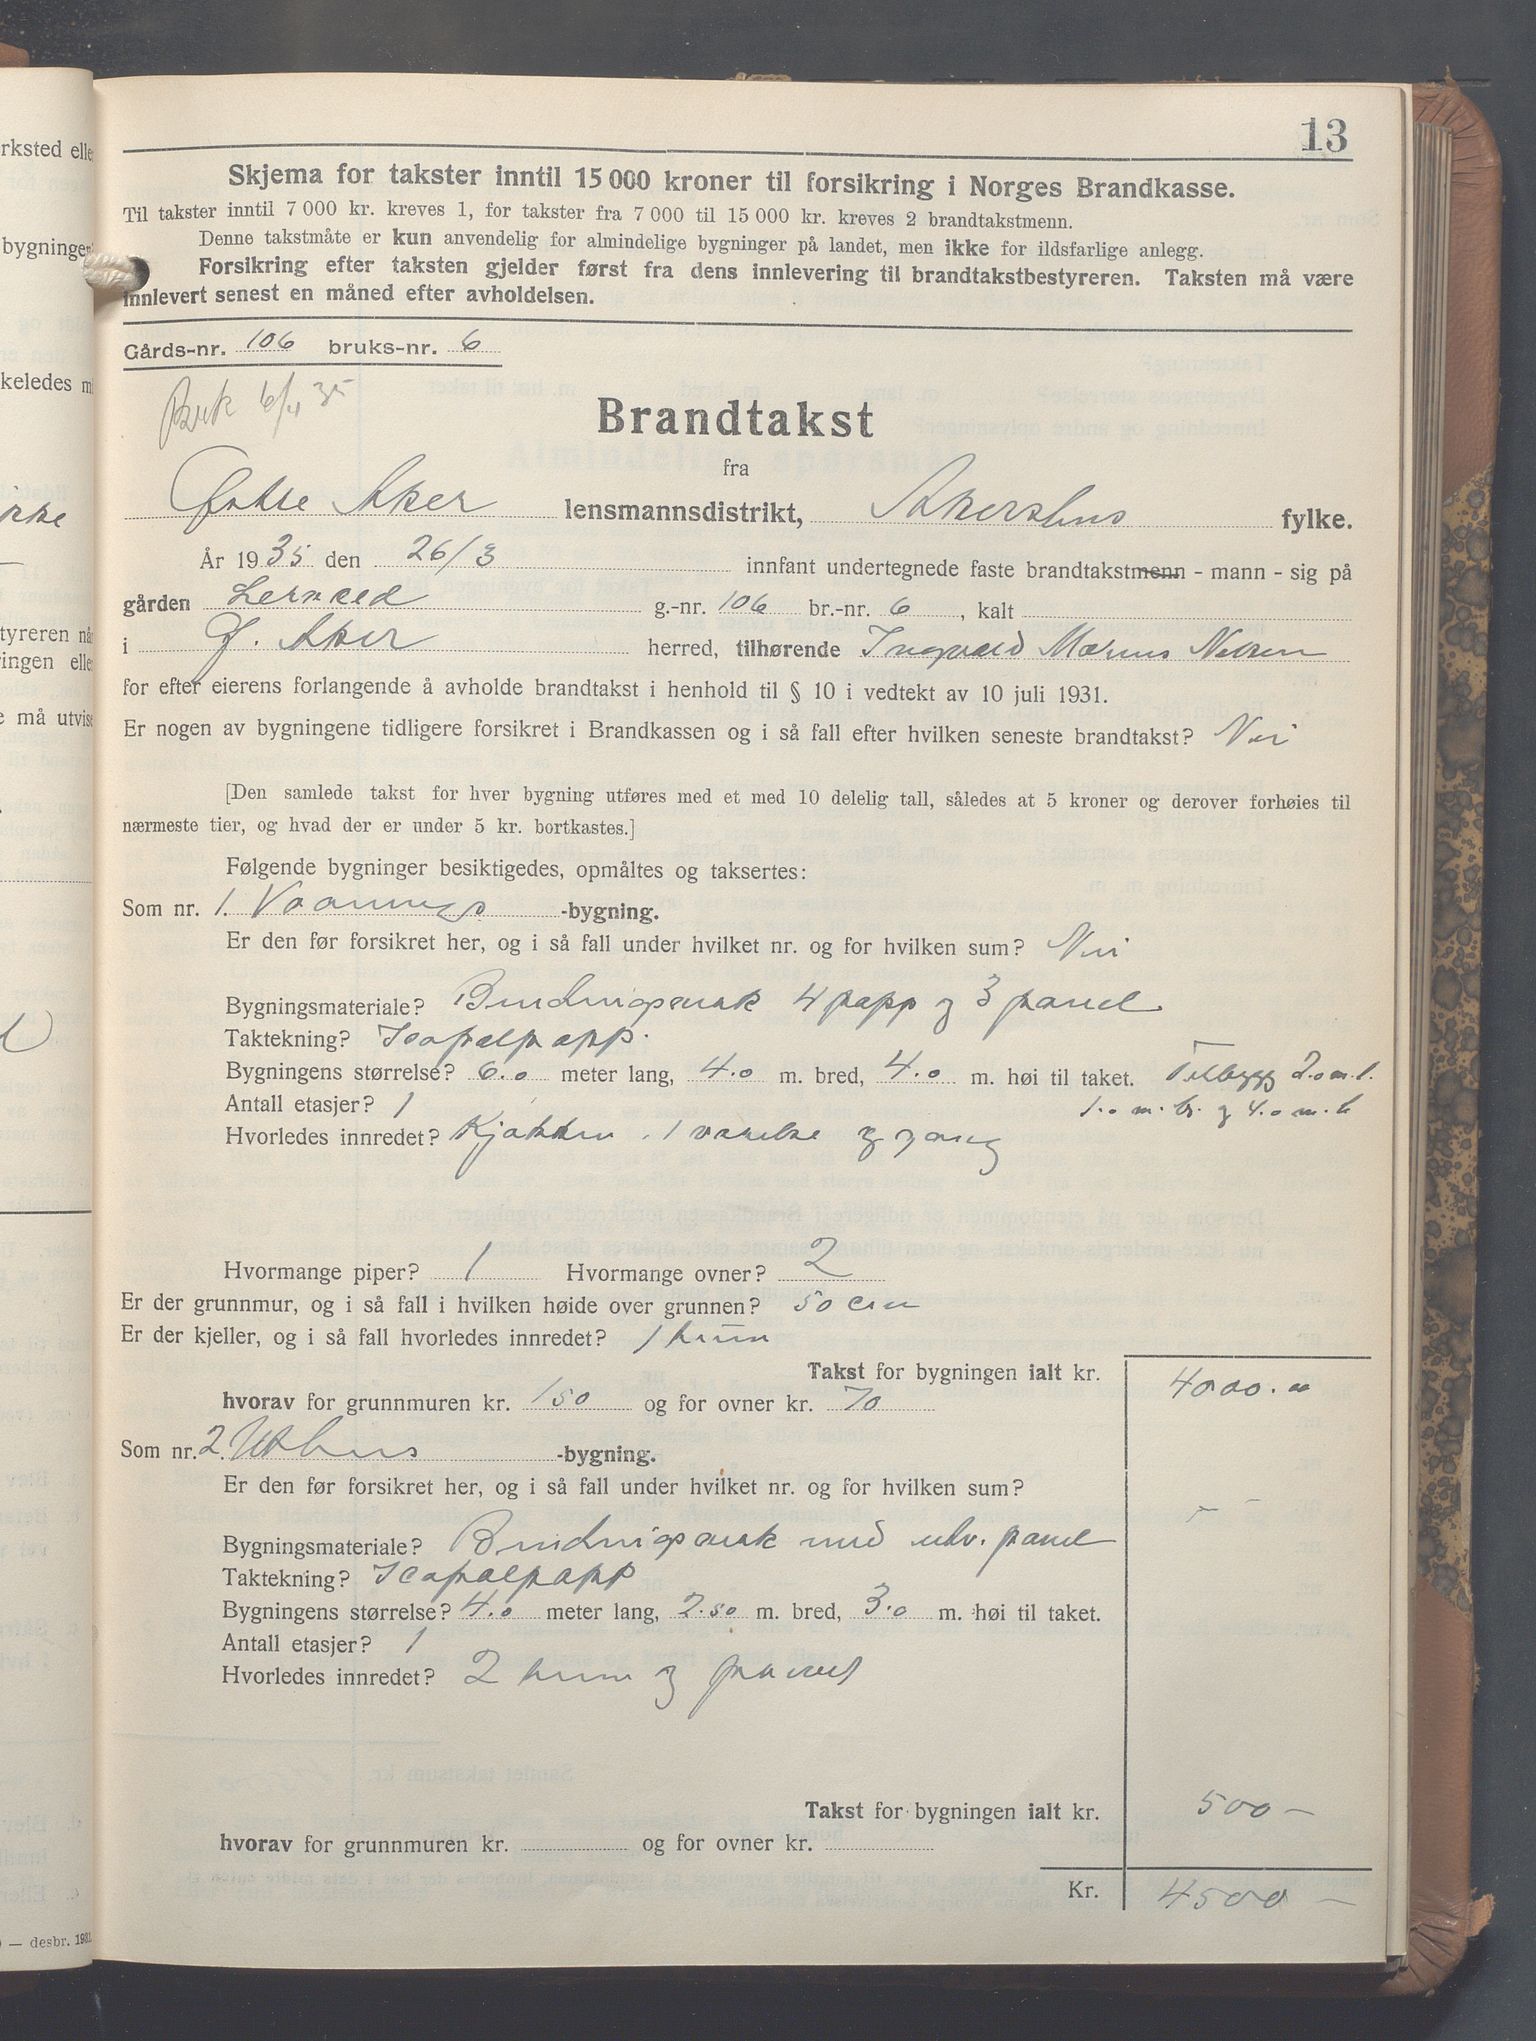 13
Skjema for takster inntil 15 000 kroner til forsikring i Norges Brandkasse.
Til takster inntil 7 000 kr. kreves 1, for takster fra 7 000 til 15 000 kr. kreves 2 brandtakstmenn.
Denne takstmåte er kun anvendelig for almindelige bygninger på landet, men ikke for ildsfarlige anlegg.
Forsikring efter taksten gjelder først fra dens innlevering til brandtakstbestyreren. Taksten må være
innlevert senest en måned efter avholdelsen.
Gårds-nr. 106 bruks-nr. 6
6/4 35
Brandtakst
fra
Østre Aker lensmannsdistrikt, Akershus fylke.
År 1935 den 26/3 innfant undertegnede faste brandtakstmenn - mann - sig på
gården g.-nr. 106 br.-nr. 6, kalt
i Ø. Aker herred, tilhørende Ingvald Marius Nilsen
for efter eierens forlangende å avholde brandtakst i henhold til § 10 i vedtekt av 10 juli 1931.
Er nogen av bygningene tidligere forsikret i Brandkassen og i så fall efter hvilken seneste brandtakst? Nei
[Den samlede takst for hver bygning utføres med et med 10 delelig tall, således at 5 kroner og derover forhøies til
nærmeste tier, og hvad der er under 5 kr. bortkastes.]
Følgende bygninger besiktigedes, opmåltes og taksertes:
Som nr. 1. Vaanings -bygning.
Er den før forsikret her, og i så fall under hvilket nr. og for hvilken sum? Nei
Bygningsmateriale? Bindingsverk 4 papp og 3 panel
Taktekning? Icopalpapp.
Bygningens størrelse? 6.0 meter lang, 4.0 m. bred, 4.0 m. høi til taket. Tilbygg 2.0 m. l.
Antall etasjer? 1 1.0 m. br. og 4.0 m. h
Hvorledes innredet? Kjøkken, 1 værelse og gang
Hvormange piper? 1 Hvormange ovner? 2
Er der grunnmur, og i så fall i hvilken høide over grunnen? 50 cm
Er der kjeller, og i så fall hvorledes innredet? 1 rum
Takst for bygningen ialt kr. 4000.00
hvorav for grunnmuren kr. 150 og for ovner kr. 70
Som nr. 2. Uthus -bygning.
Er den før forsikret her, og i så fall under hvilket nr. og for hvilken sum?
Bygningsmateriale? Bindingsverk med utv. panel
Taktekning? Icopalpapp
Bygningens størrelse? 4.0 meter lang, 2.50 m. bred, 3.0 m. høi til taket.
Antall etasjer? 1
Hvorledes innredet? 2 rum og privet
Takst for bygningen ialt kr. 500 -
hvorav for grunnmuren kr. og for ovner kr.
Kr. 4500 -